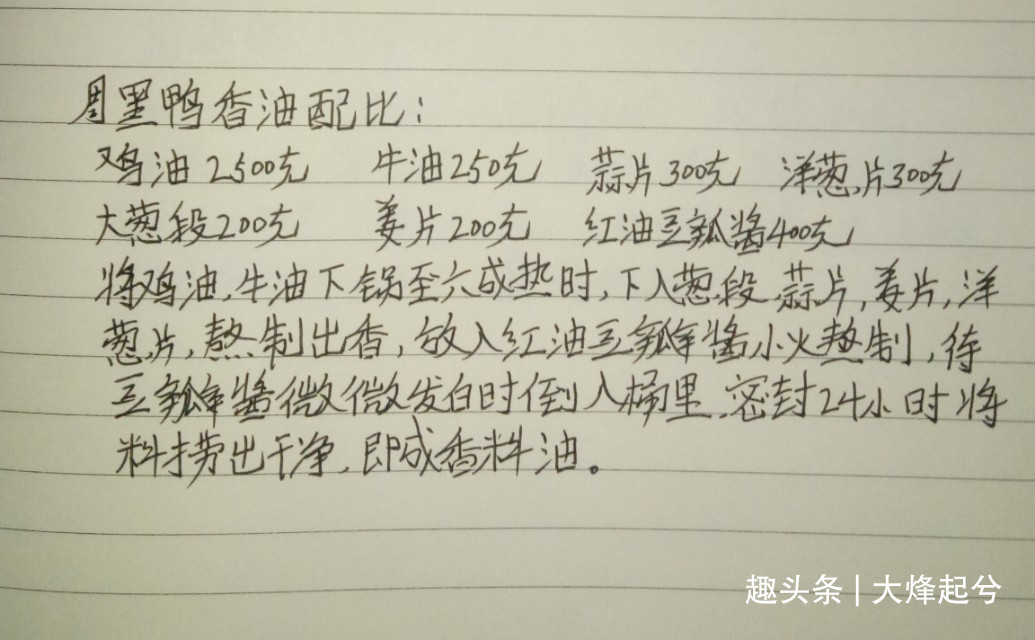 周黑鸭香油配比：
鸡油2500克 牛油250克 蒜片300克 洋葱片300克
大葱段200克 姜片200克 红油豆瓣酱400克
将鸡油,牛油下锅至六成热时,下入葱段,蒜片,姜片,洋
葱片,熬制出香,放入红油豆瓣酱小火熬制,待
豆瓣酱微微发白时倒入桶里,密封24小时将
料捞出干净,即成香料油。
趣头条 | 大烽起兮